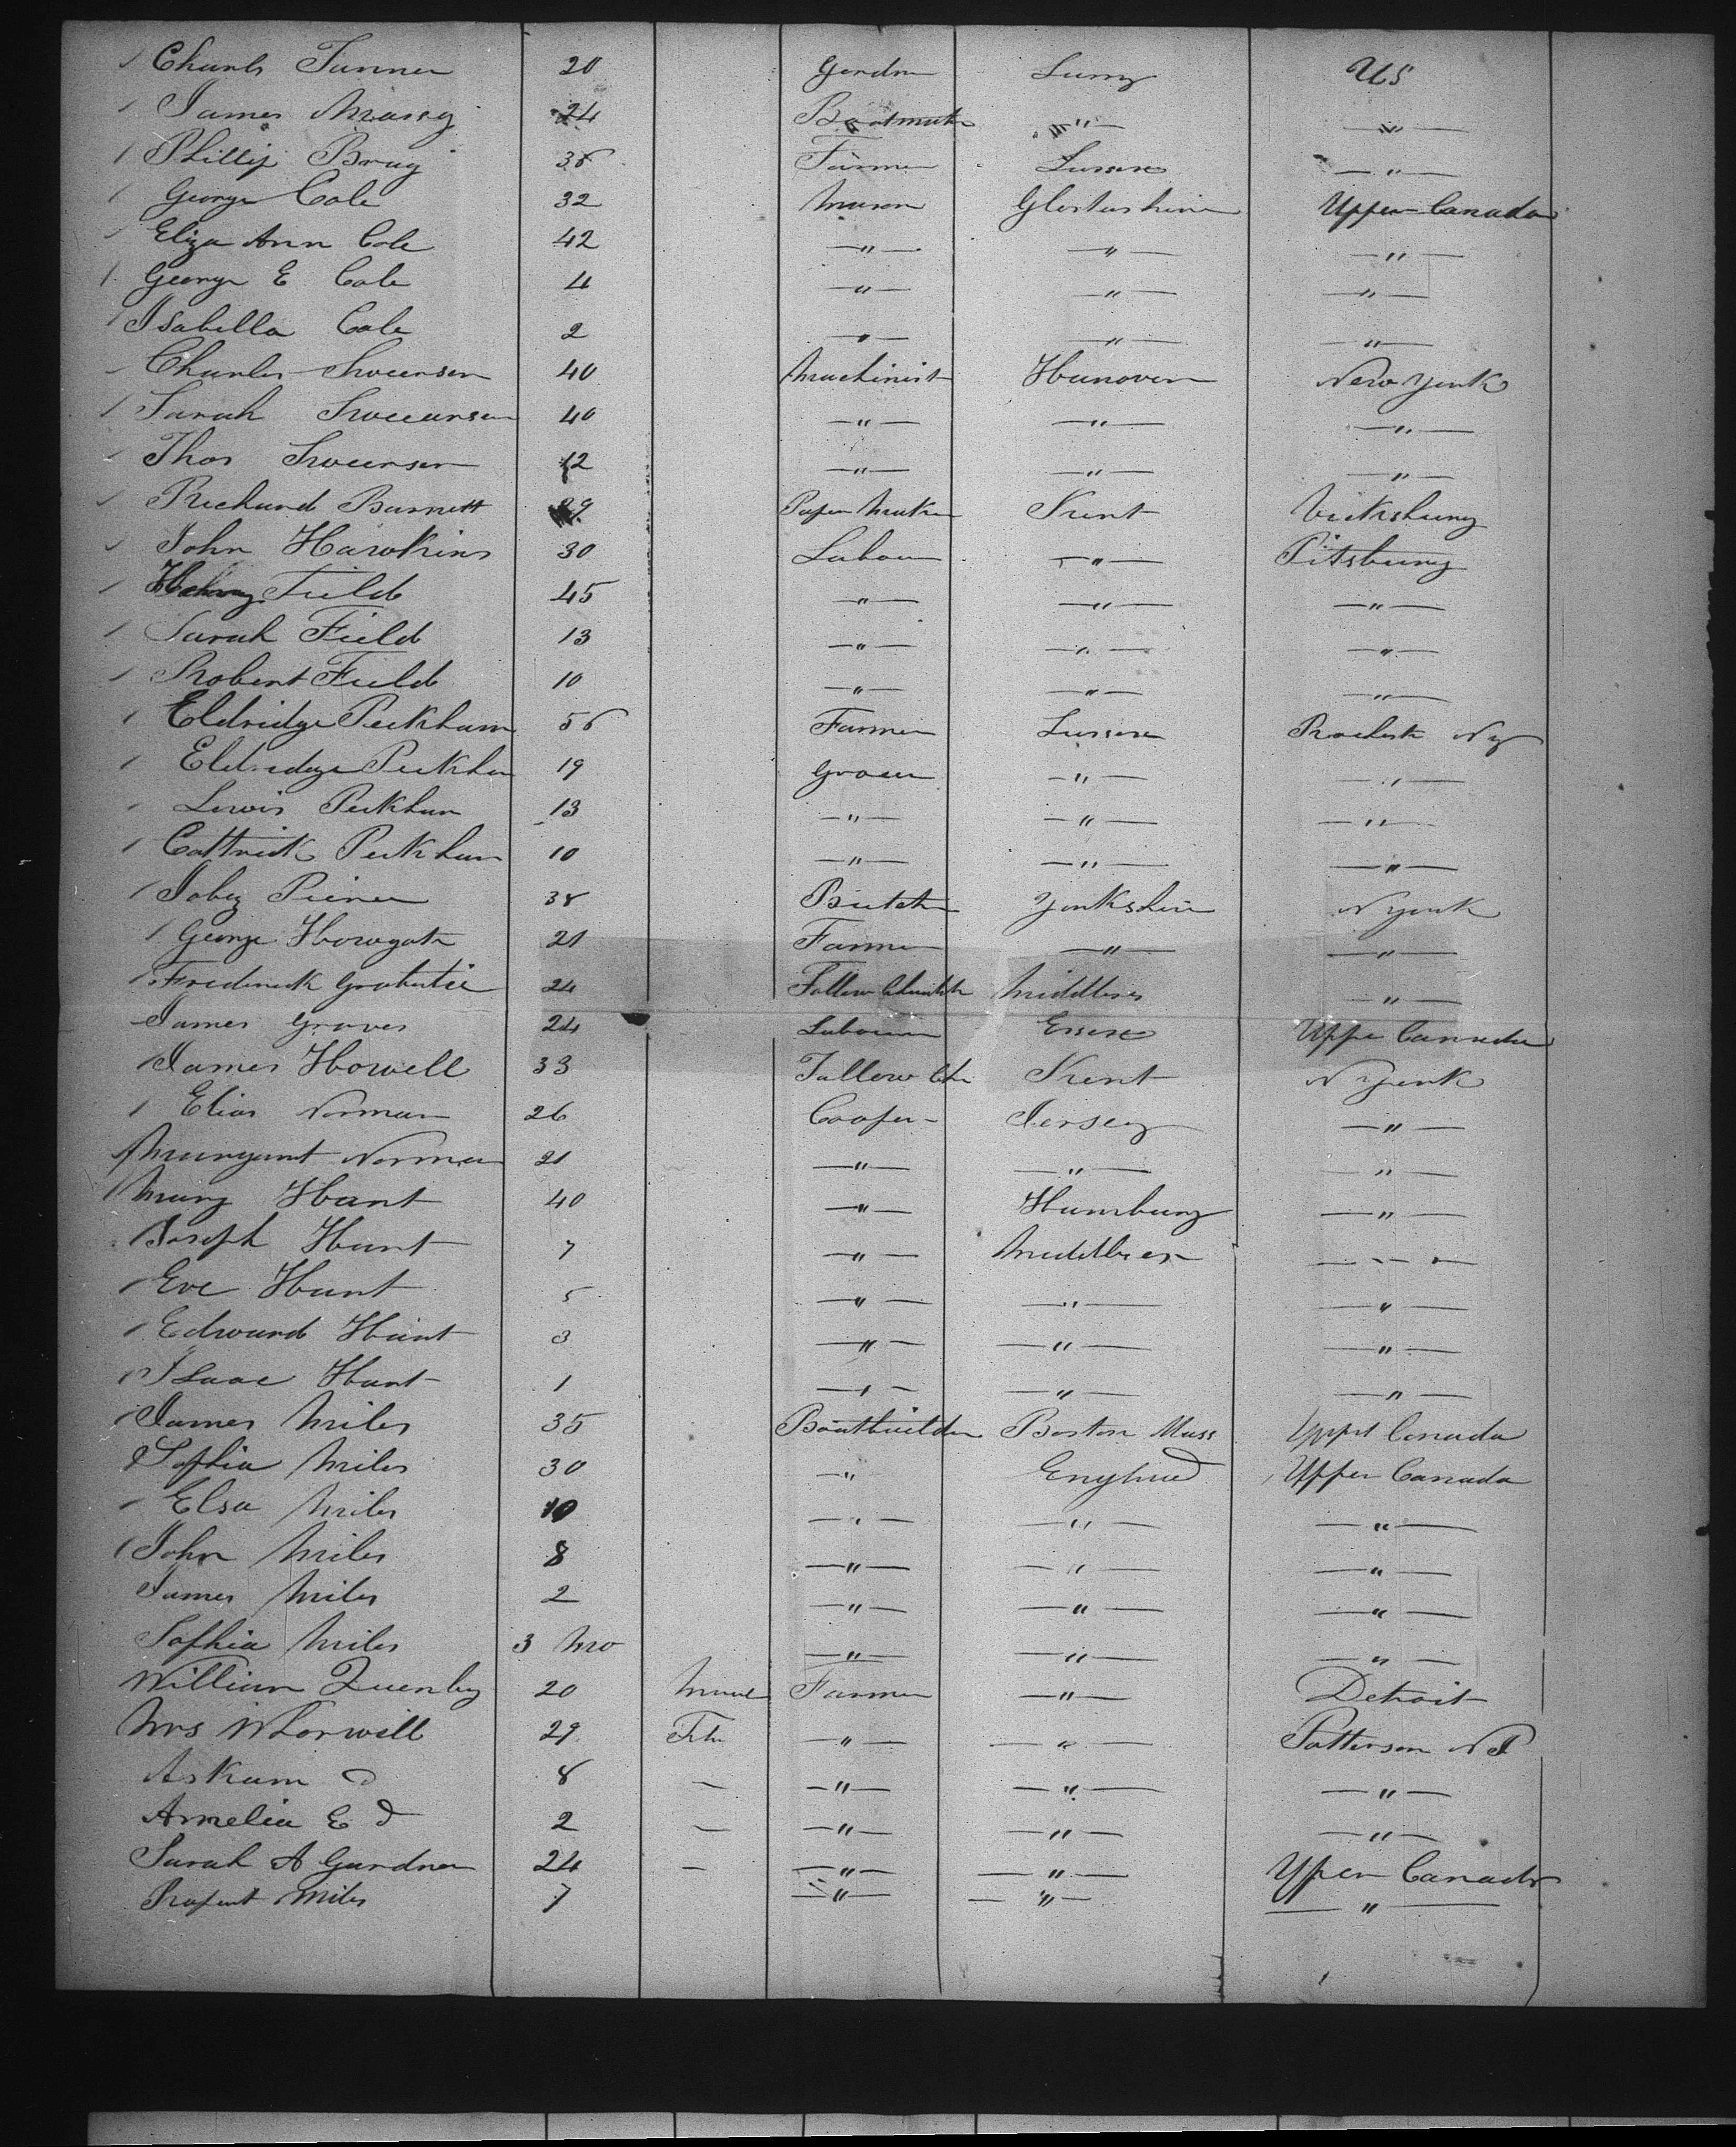 Charls Tanner 20 Gardnr Surry US
James Massey 24 Bootmak " "
Phillip Bray 36 Farmer Sussex "
George Cole 32 Mason Glostershire Upper Canada
Eliza Ann Cole 42 " " "
George E Cole 4 " " "
Isabella Cole 2 " " "
Charles 40 Machinist Hanover New York
Sarah 40 " " "
Thos 12 " " "
Richard Barnett 29 Paper Maker Kent Vicksburg
John Hawkins 30 Labour " Pitsburg
Henry Field 45 " " "
Sarah Field 13 " " "
Robert Field 10 " " "
Eldridge Peckham 56 Farmer Sussex Rochestr Ny
Eldridge Peckham 19 Grocer " "
Lewis Peckham 13 " " "
Peckham 10 " " "
Jabez 38 Butch Yorkshire N York
George Howgate 21 Farmer " "
Frederick 24 Tallow Middlesex "
James Graves 24 Labourer Essex Upper Canada
James Howell 33 Tallow Ch Kent N York
Elias Norman 26 Cooper Jersey "
Margaret Norman 21 " " "
Mary Hant 40 " Hamburg "
Joseph Hant 7 " Middlesex "
Eve Hant 5 " " "
Edward Hant 3 " " "
Isaac Hant 1 " " "
James Miles 35 Boatbuilder Boston Mass Upper Canada
Sophia Miles 30 " England Upper Canada
Elsa Miles 10 " " "
John Miles 8 " " "
James Miles 2 " " "
Sophia Miles 3 Mo " " "
William Quenby 20 Male Farmer " Detroit
Mrs Whorwill 29 Fem " " Patterson NJ
Askam D 8 — " " "
Amelia E D 2 — " " "
Sarah A Gardner 24 — " " Upper Canada
Miles 7 " " "